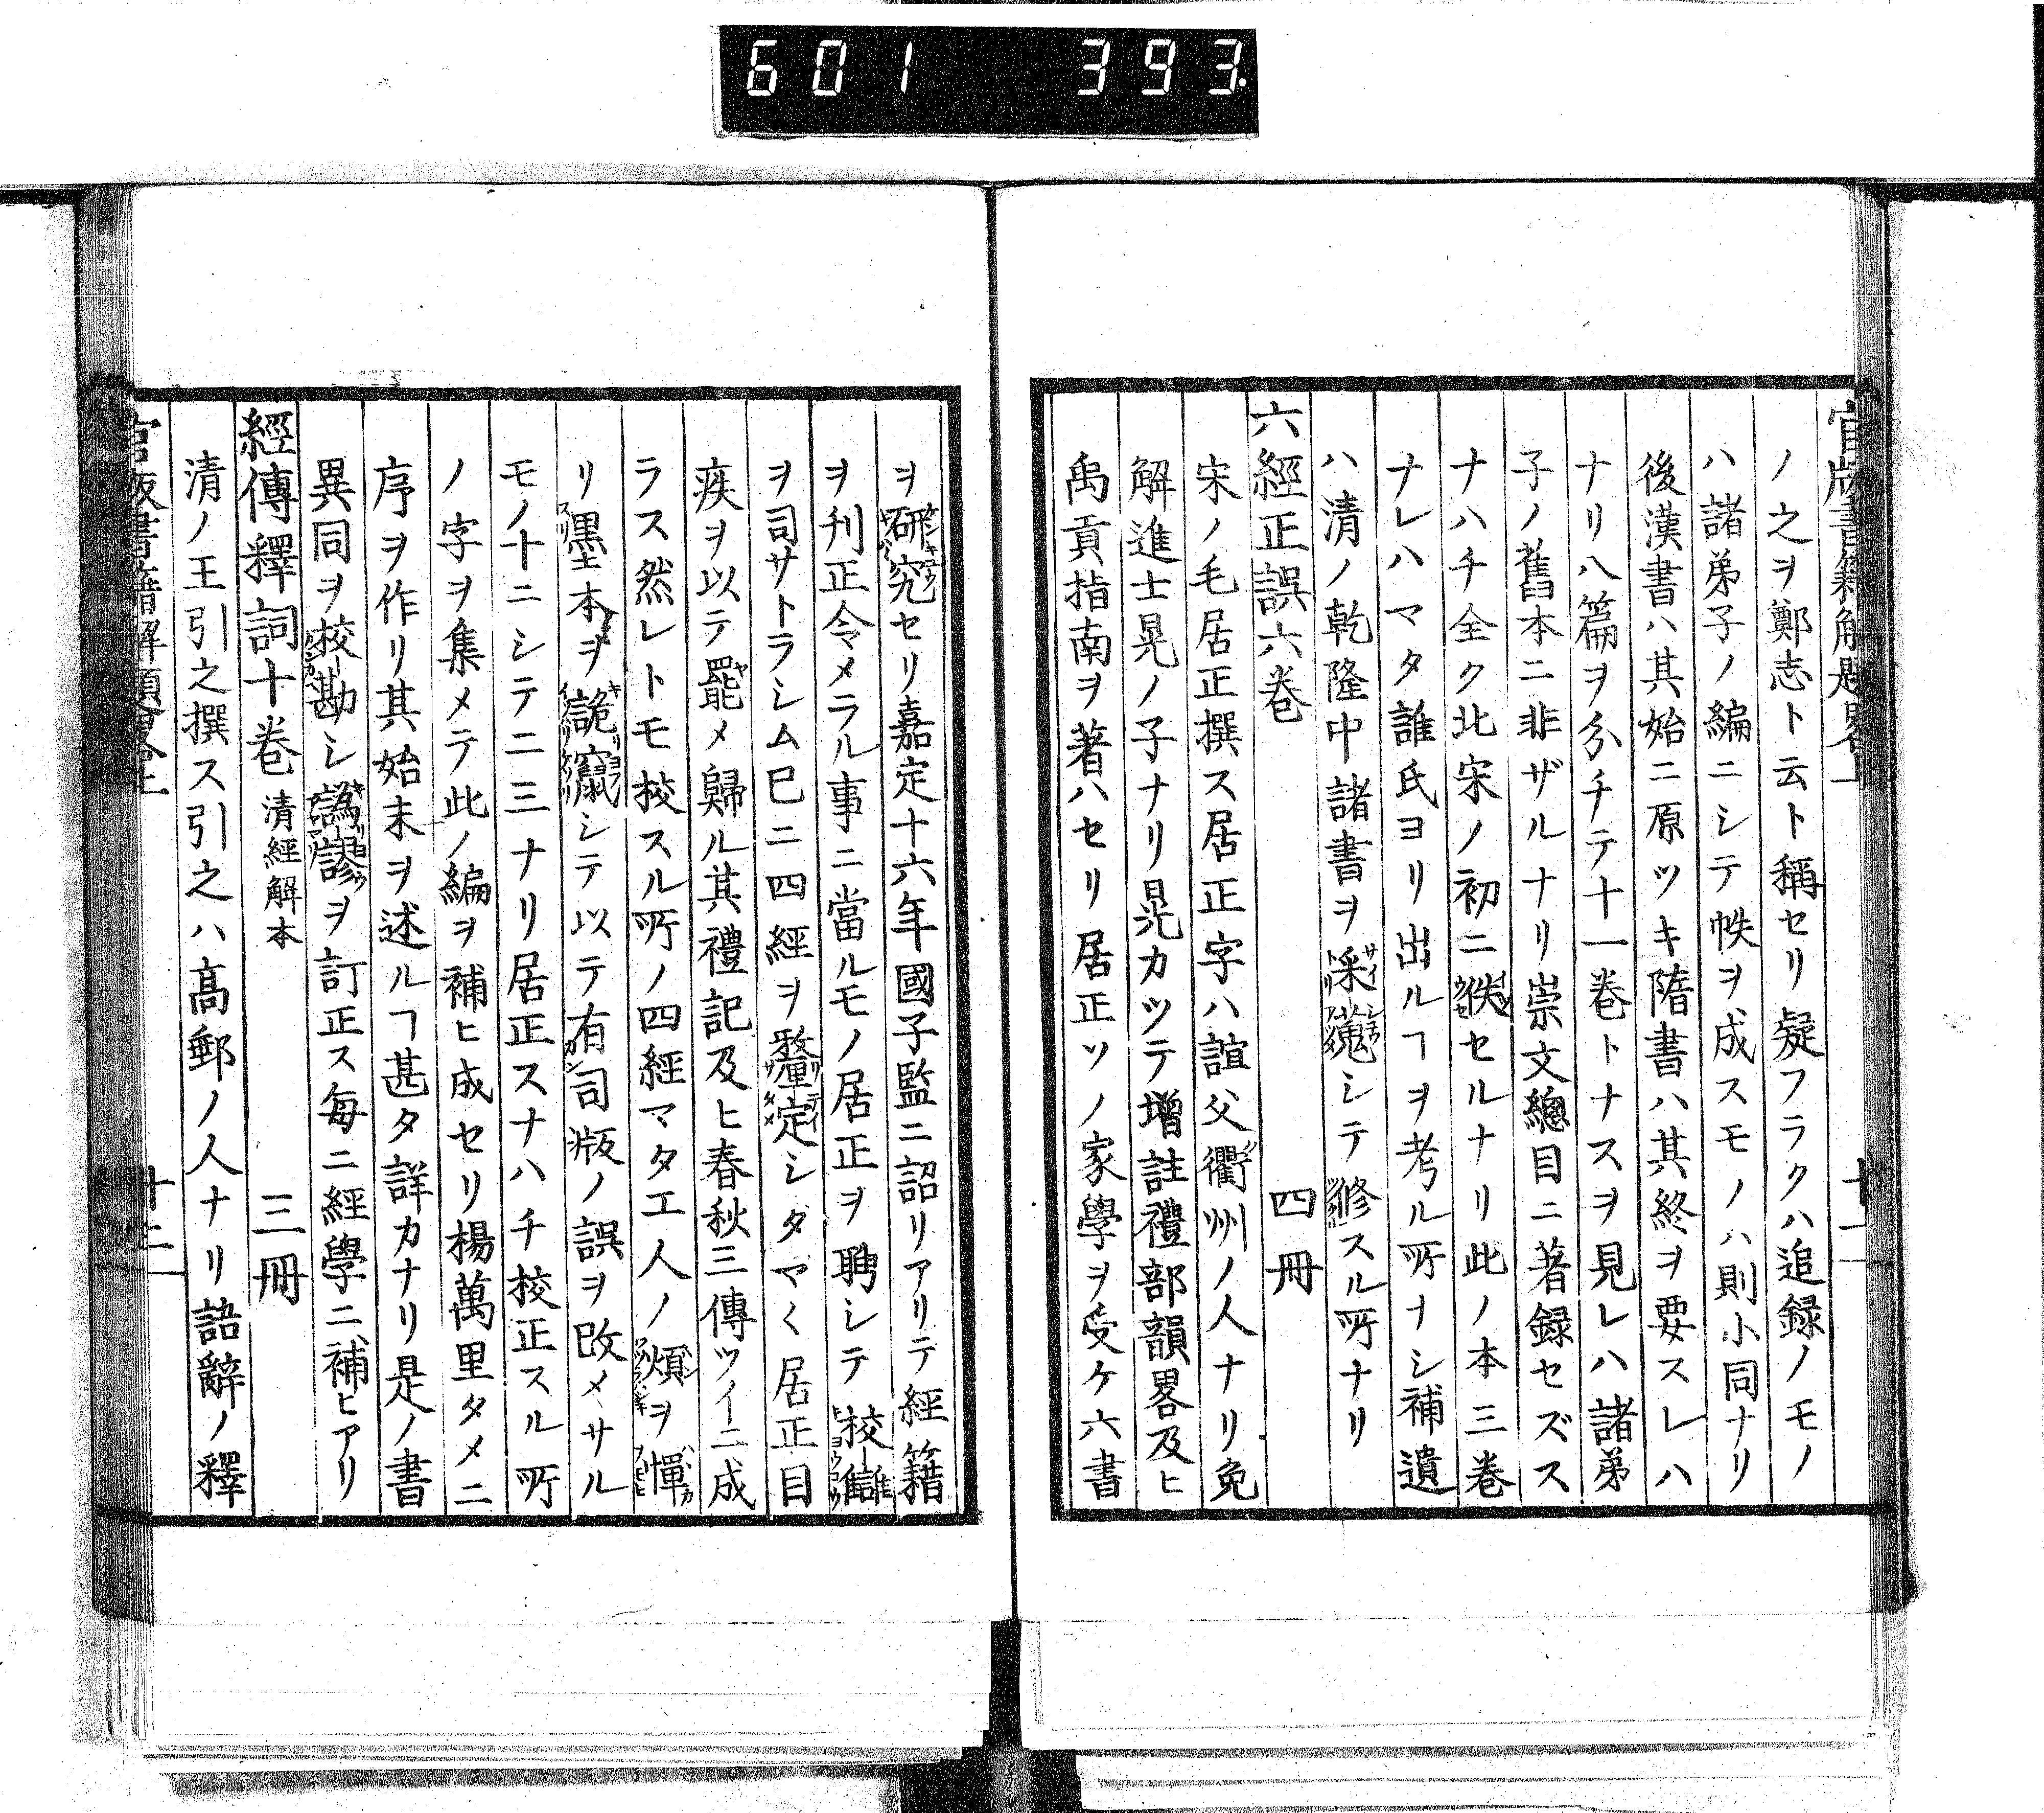 601 393.
官版書籍解題畧上 十一
ノ之ヲ鄭志ト云ト稱セリ疑フラクハ追録ノモノ
ハ諸弟子ノ編ニシテ帙ヲ成スモノハ則小同ナリ
後漢書ハ其始ニ原ツキ隋書ハ其終ヲ要スレハ
ナリ八篇ヲ分チテ十一巻トナスヲ見レハ諸弟
子ノ舊本ニ非ザルナリ崇文總目ニ著録セズス
ナハチ全ク北宋ノ初ニ佚セルナリ此ノ本三巻
ナレハマタ誰氏ヨリ出ルヿヲ考ル所ナシ補遺
ハ清ノ乾隆中諸書ヲ採蒐シテ修スル所ナリ
六經正誤六巻 四冊
宋ノ毛居正撰ス居正字ハ誼父衢州ノ人ナリ免
解進士晃ノ子ナリ晃カツテ增註禮部韻畧及ヒ
禹貢指南ヲ著ハセリ居正ソノ家學ヲ受ケ六書
ヲ研究セリ嘉定十六年國子監ニ詔リアリテ經籍
ヲ刊正令メラル事ニ當ルモノ居正ヲ聘シテ校讎
ヲ司サトラシム巳ニ四經ヲ釐定シタマ〱居正目
疾ヲ以テ罷メ歸ル其禮記及ヒ春秋三傳ツイニ成
ラス然レトモ校スル所ノ四經マタ工人ノ煩ヲ憚
リ墨本ヲ詭竄シテ以テ有司版ノ誤ヲ改メサル
モノ十ニシテ二三ナリ居正スナハチ校正スル所
ノ字ヲ集メテ此ノ編ヲ補ヒ成セリ楊萬里タメニ
序ヲ作リ其始末ヲ述ルヿ甚タ詳カナリ是ノ書
異同ヲ校勘シ譌謬ヲ訂正ス每ニ經學ニ補ヒアリ
經傳釋詞十巻 清經解本 三冊
清ノ王引之撰ス引之ハ高郵ノ人ナリ語辭ノ釋
官版書籍解題畧上 十二